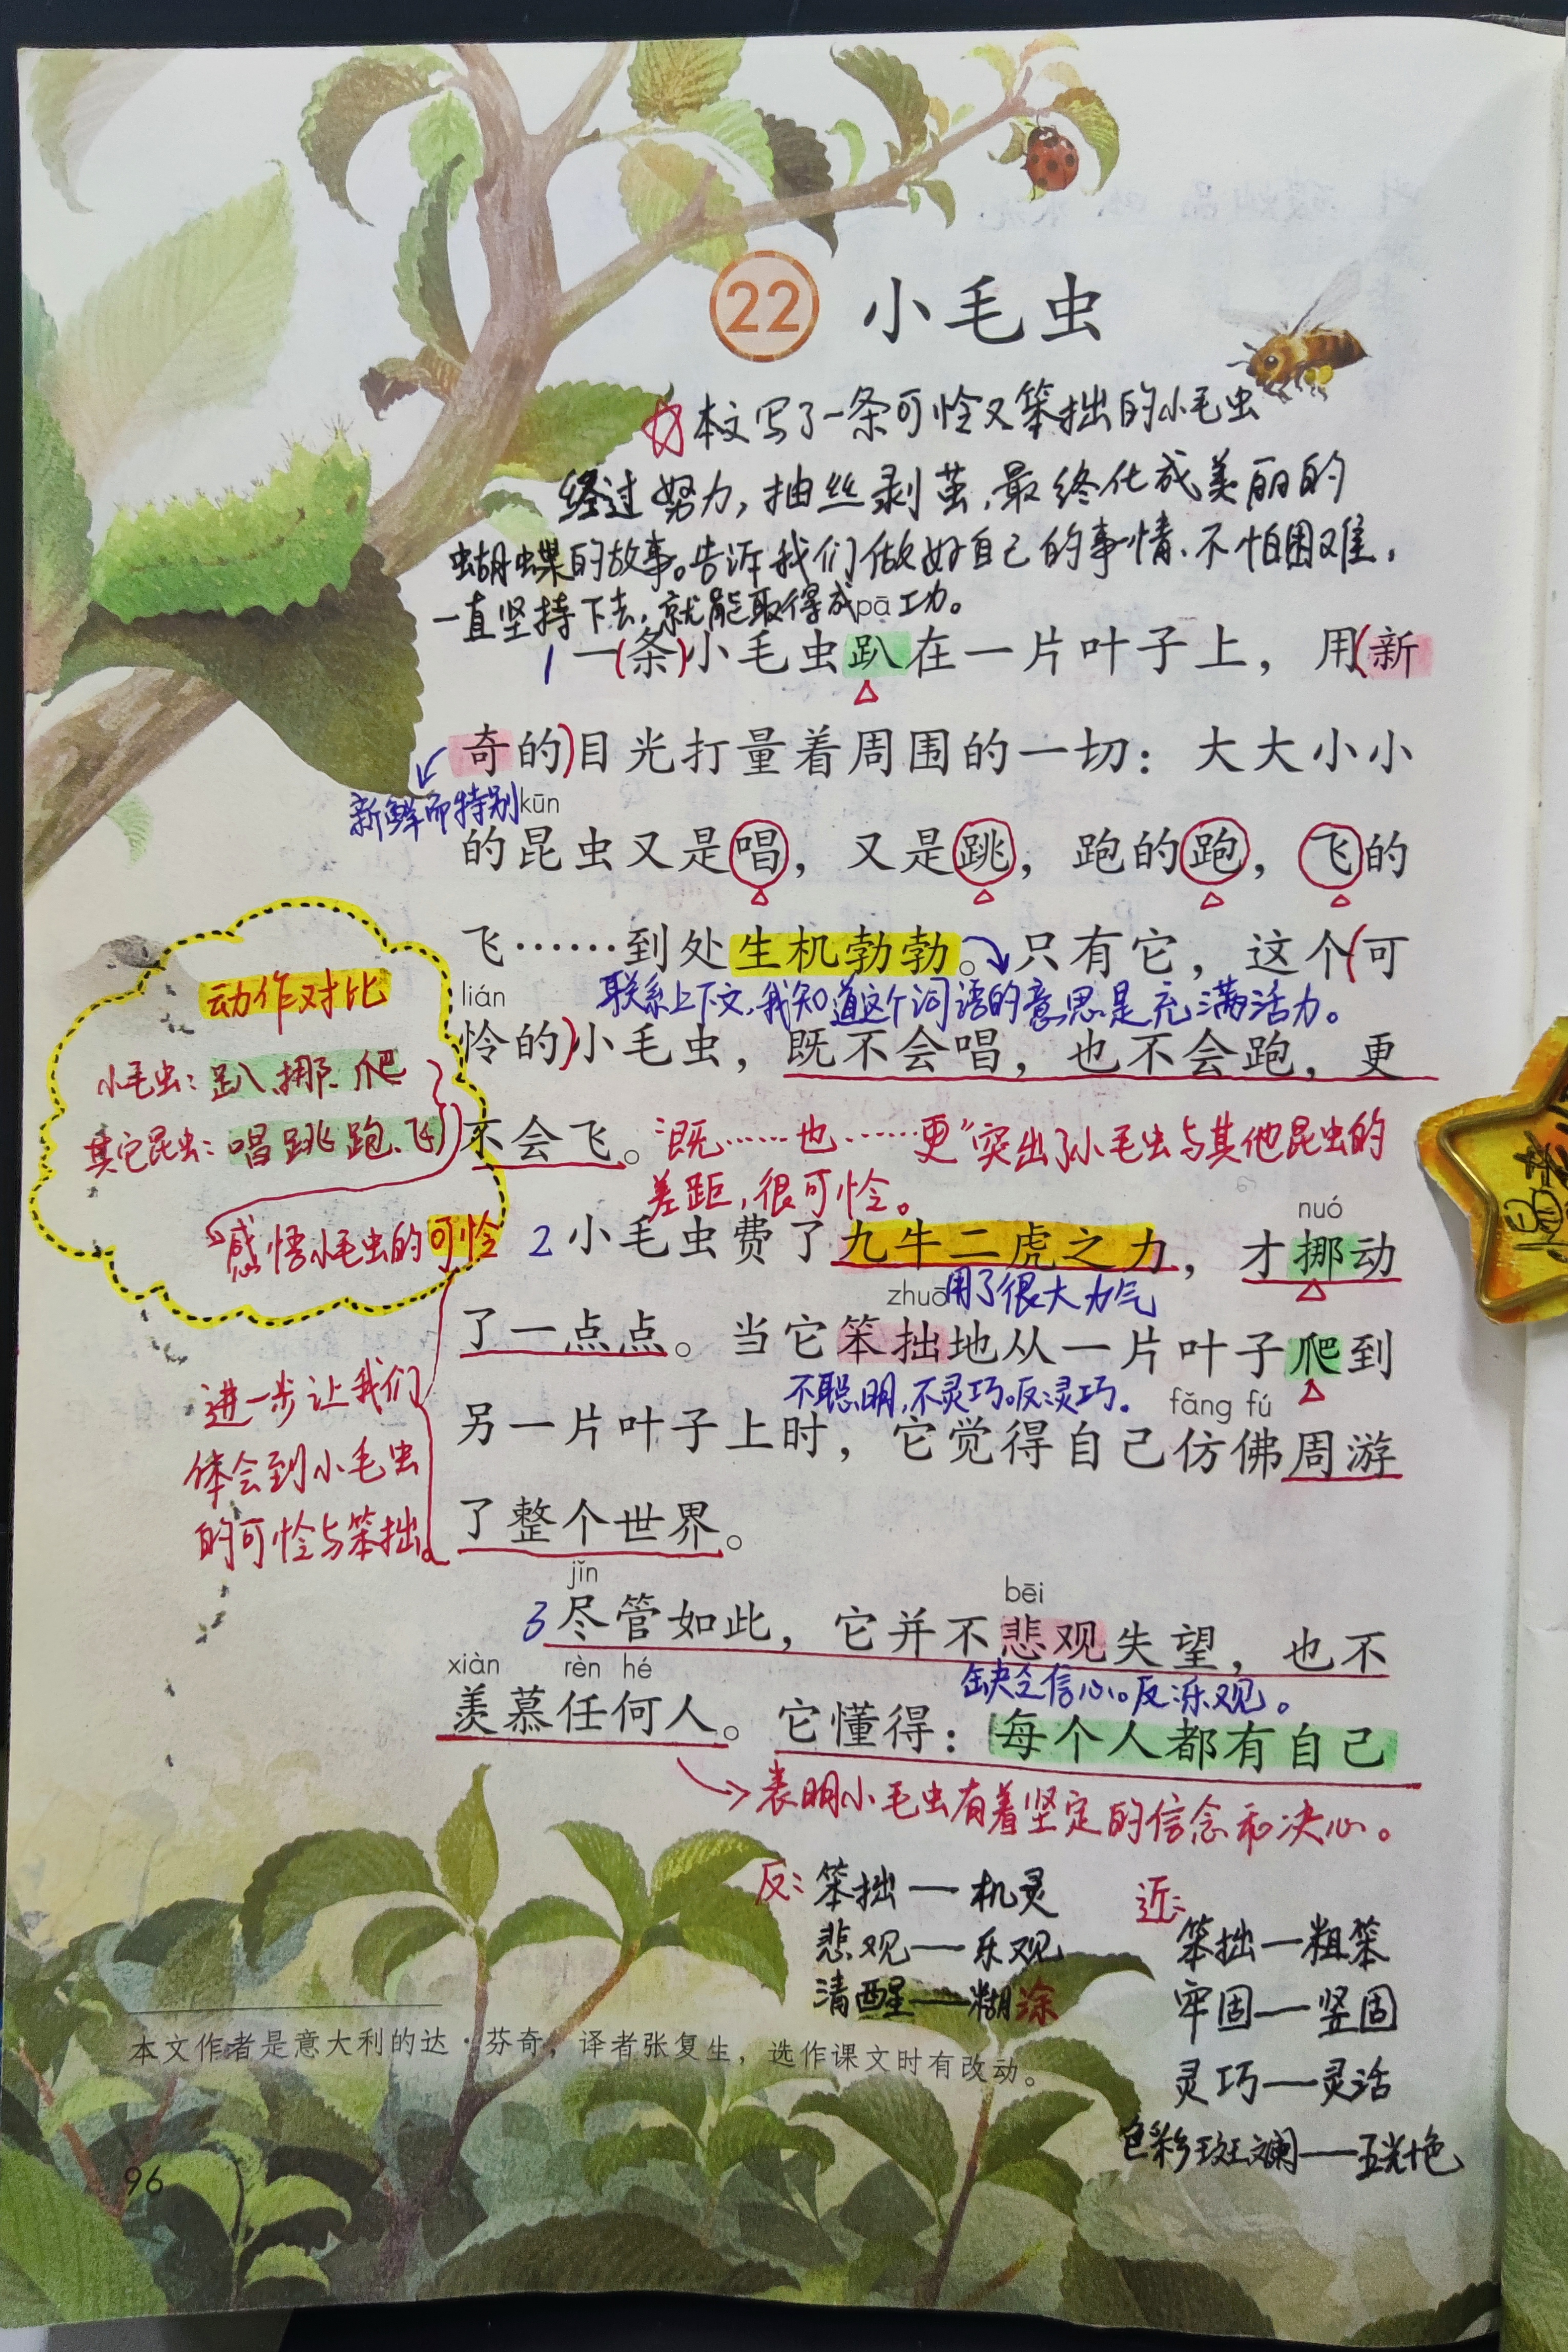 22 小毛虫
☆本文写了一条可怜又笨拙的小毛虫
经过努力，抽丝剥茧，最终化成美丽的
蝴蝶的故事。告诉我们做好自己的事情、不怕困难，
一直坚持下去，就能取得成功。
pā
1 一(条)小毛虫趴在一片叶子上，用(新
奇的)目光打量着周围的一切：大大小小
新鲜而特别
kūn
的昆虫又是唱，又是跳，跑的跑，飞的
飞……到处生机勃勃。只有它，这个(可
联系上下文，我知道这个词语的意思是充满活力。
lián
怜的)小毛虫，既不会唱，也不会跑，更
不会飞。“既……也……更”突出了小毛虫与其他昆虫的
差距，很可怜。
动作对比
小毛虫：趴、挪、爬
其它昆虫：唱跳跑、飞
感悟小毛虫的可怜
nuó
2 小毛虫费了九牛二虎之力，才挪动
用了很大力气
zhuō
了一点点。当它笨拙地从一片叶子爬到
不聪明，不灵巧。反灵巧。
fǎng fú
另一片叶子上时，它觉得自己仿佛周游
了整个世界。
进一步让我们
体会到小毛虫
的可怜与笨拙。
jǐn bēi
3 尽管如此，它并不悲观失望，也不
缺乏信心。反乐观。
xiàn rèn hé
羡慕任何人。它懂得：每个人都有自己
表明小毛虫有着坚定的信念和决心。
反：笨拙—机灵
悲观—乐观
清醒—糊涂
近：
笨拙—粗笨
牢固—坚固
灵巧—灵活
色彩斑斓—五光十色
本文作者是意大利的达·芬奇，译者张复生，选作课文时有改动。
96